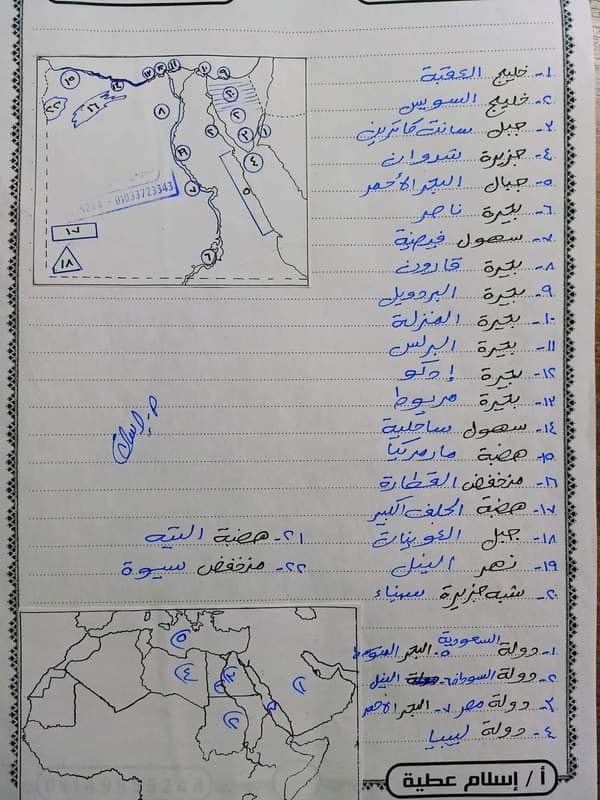 ١- خليج العقبة
٢- خليج السويس
٣- جبل سانت كاترين
٤- جزيرة شدوان
٥- جبال البحر الأحمر
٦- بحيرة ناصر
٧- سهول فيضية
٨- بحيرة قارون
٩- بحيرة البردويل
١٠- بحيرة المنزلة
١١- بحيرة البرلس
١٢- بحيرة إدكو
١٣- بحيرة مريوط
١٤- سهول ساحلية
١٥- هضبة مارمريكا
١٦- منخفض القطارة
١٧- هضبة الجلف الكبير
١٨- جبل العوينات
١٩- نهر النيل
٢٠- شبه جزيرة سيناء
٢١- هضبة التيه
٢٢- منخفض سيوة
01033723343
١٧
١٨
١- دولة السعودية ٥- البحر المتوسط
٢- دولة السودان ٦- النيل
٣- دولة مصر ٧- البحر الأحمر
٤- دولة ليبيا
أ / إسلام عطية